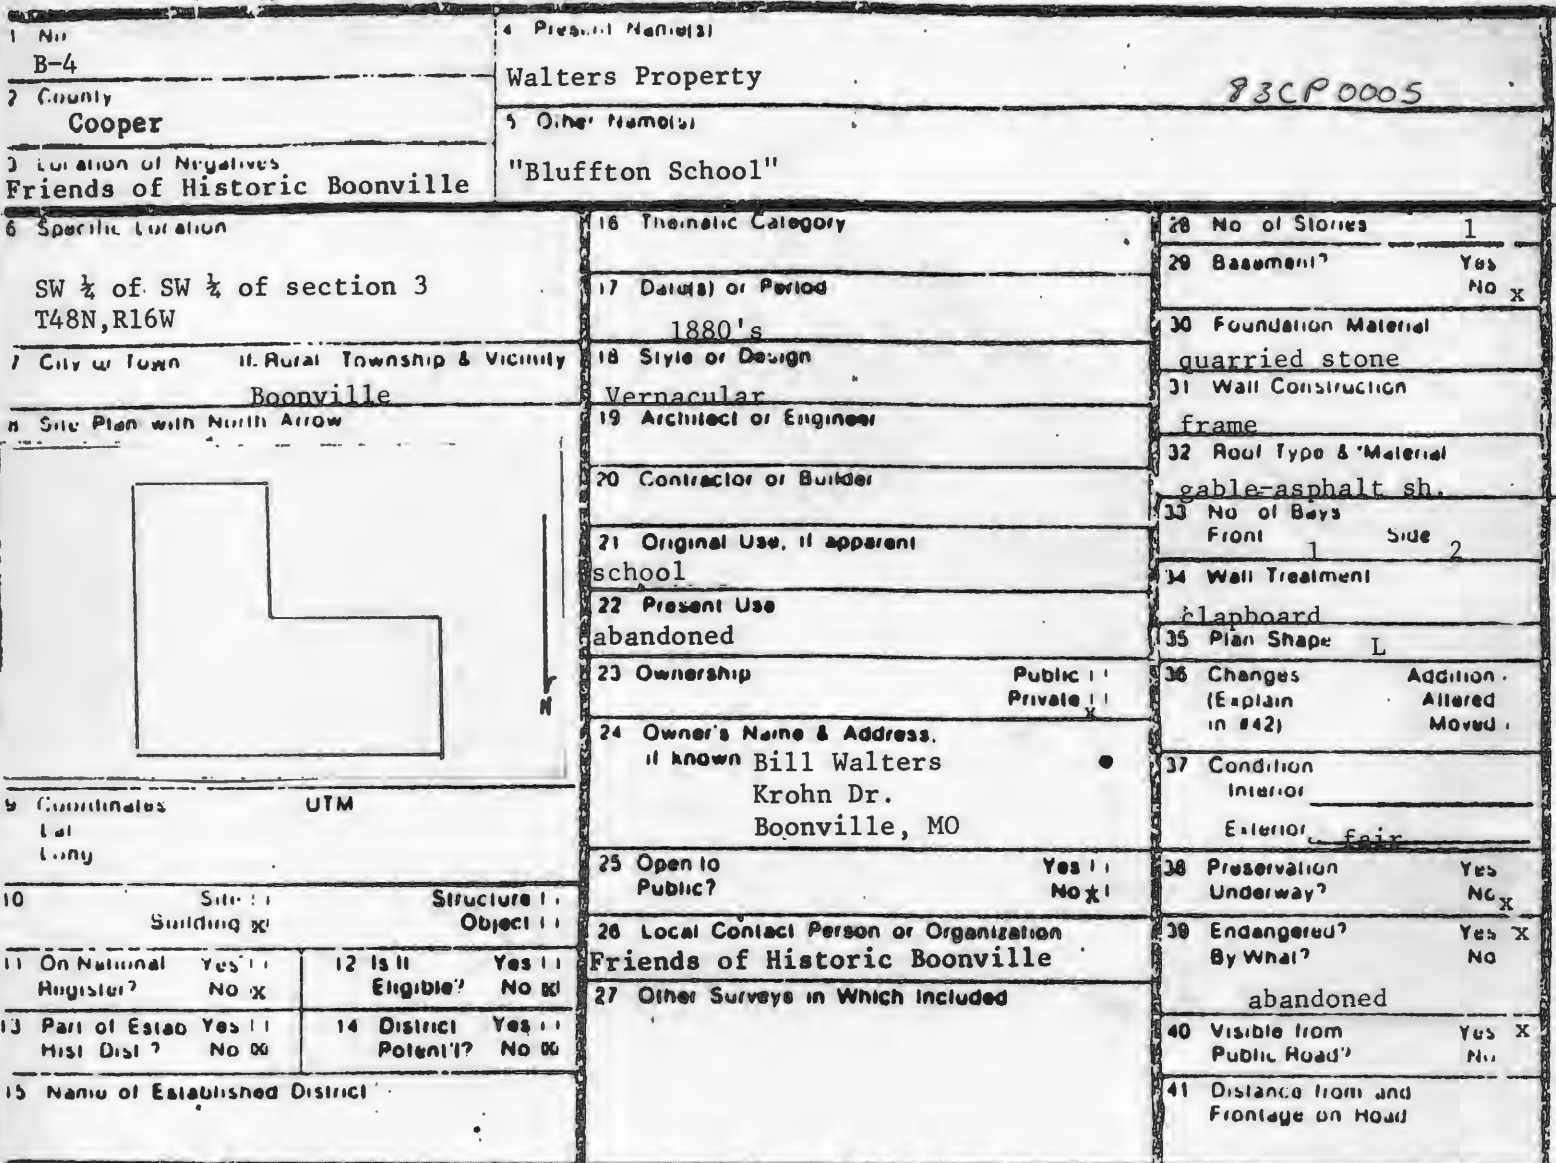 1 No
B-4
4 Present Name(s)
Walters Property
83CP0005
2 County
Cooper
5 Other Name(s)
"Bluffton School"
3 Location of Negatives
Friends of Historic Boonville
6 Specific Location
SW ¼ of SW ¼ of section 3
T48N,R16W
7 City or Town If Rural Township & Vicinity
Boonville
8 Site Plan with North Arrow
N
9 Coordinates UTM
Lat
Long
10 Site Structure
Building x Object
11 On National Register? Yes No x
12 Is It Eligible? Yes No x
13 Part of Estab Hist Dist? Yes No x
14 District Potent'l? Yes No x
15 Name of Established District
16 Thematic Category
17 Date(s) or Period
1880's
18 Style or Design
Vernacular
19 Architect or Engineer
20 Contractor or Builder
21 Original Use, if apparent
school
22 Present Use
abandoned
23 Ownership Public
Private x
24 Owner's Name & Address,
if known Bill Walters
Krohn Dr.
Boonville, MO
25 Open to Yes
Public? No x
26 Local Contact Person or Organization
Friends of Historic Boonville
27 Other Surveys in Which Included
28 No of Stories 1
29 Basement? Yes
No x
30 Foundation Material
quarried stone
31 Wall Construction
frame
32 Roof Type & Material
gable-asphalt sh.
33 No of Bays
Front 1 Side 2
34 Wall Treatment
clapboard
35 Plan Shape L
36 Changes Addition
(Explain Altered
in #42) Moved
37 Condition
Interior
Exterior fair
38 Preservation Yes
Underway? No x
39 Endangered? Yes x
By What? No
abandoned
40 Visible from Yes x
Public Road? No
41 Distance from and
Frontage on Road